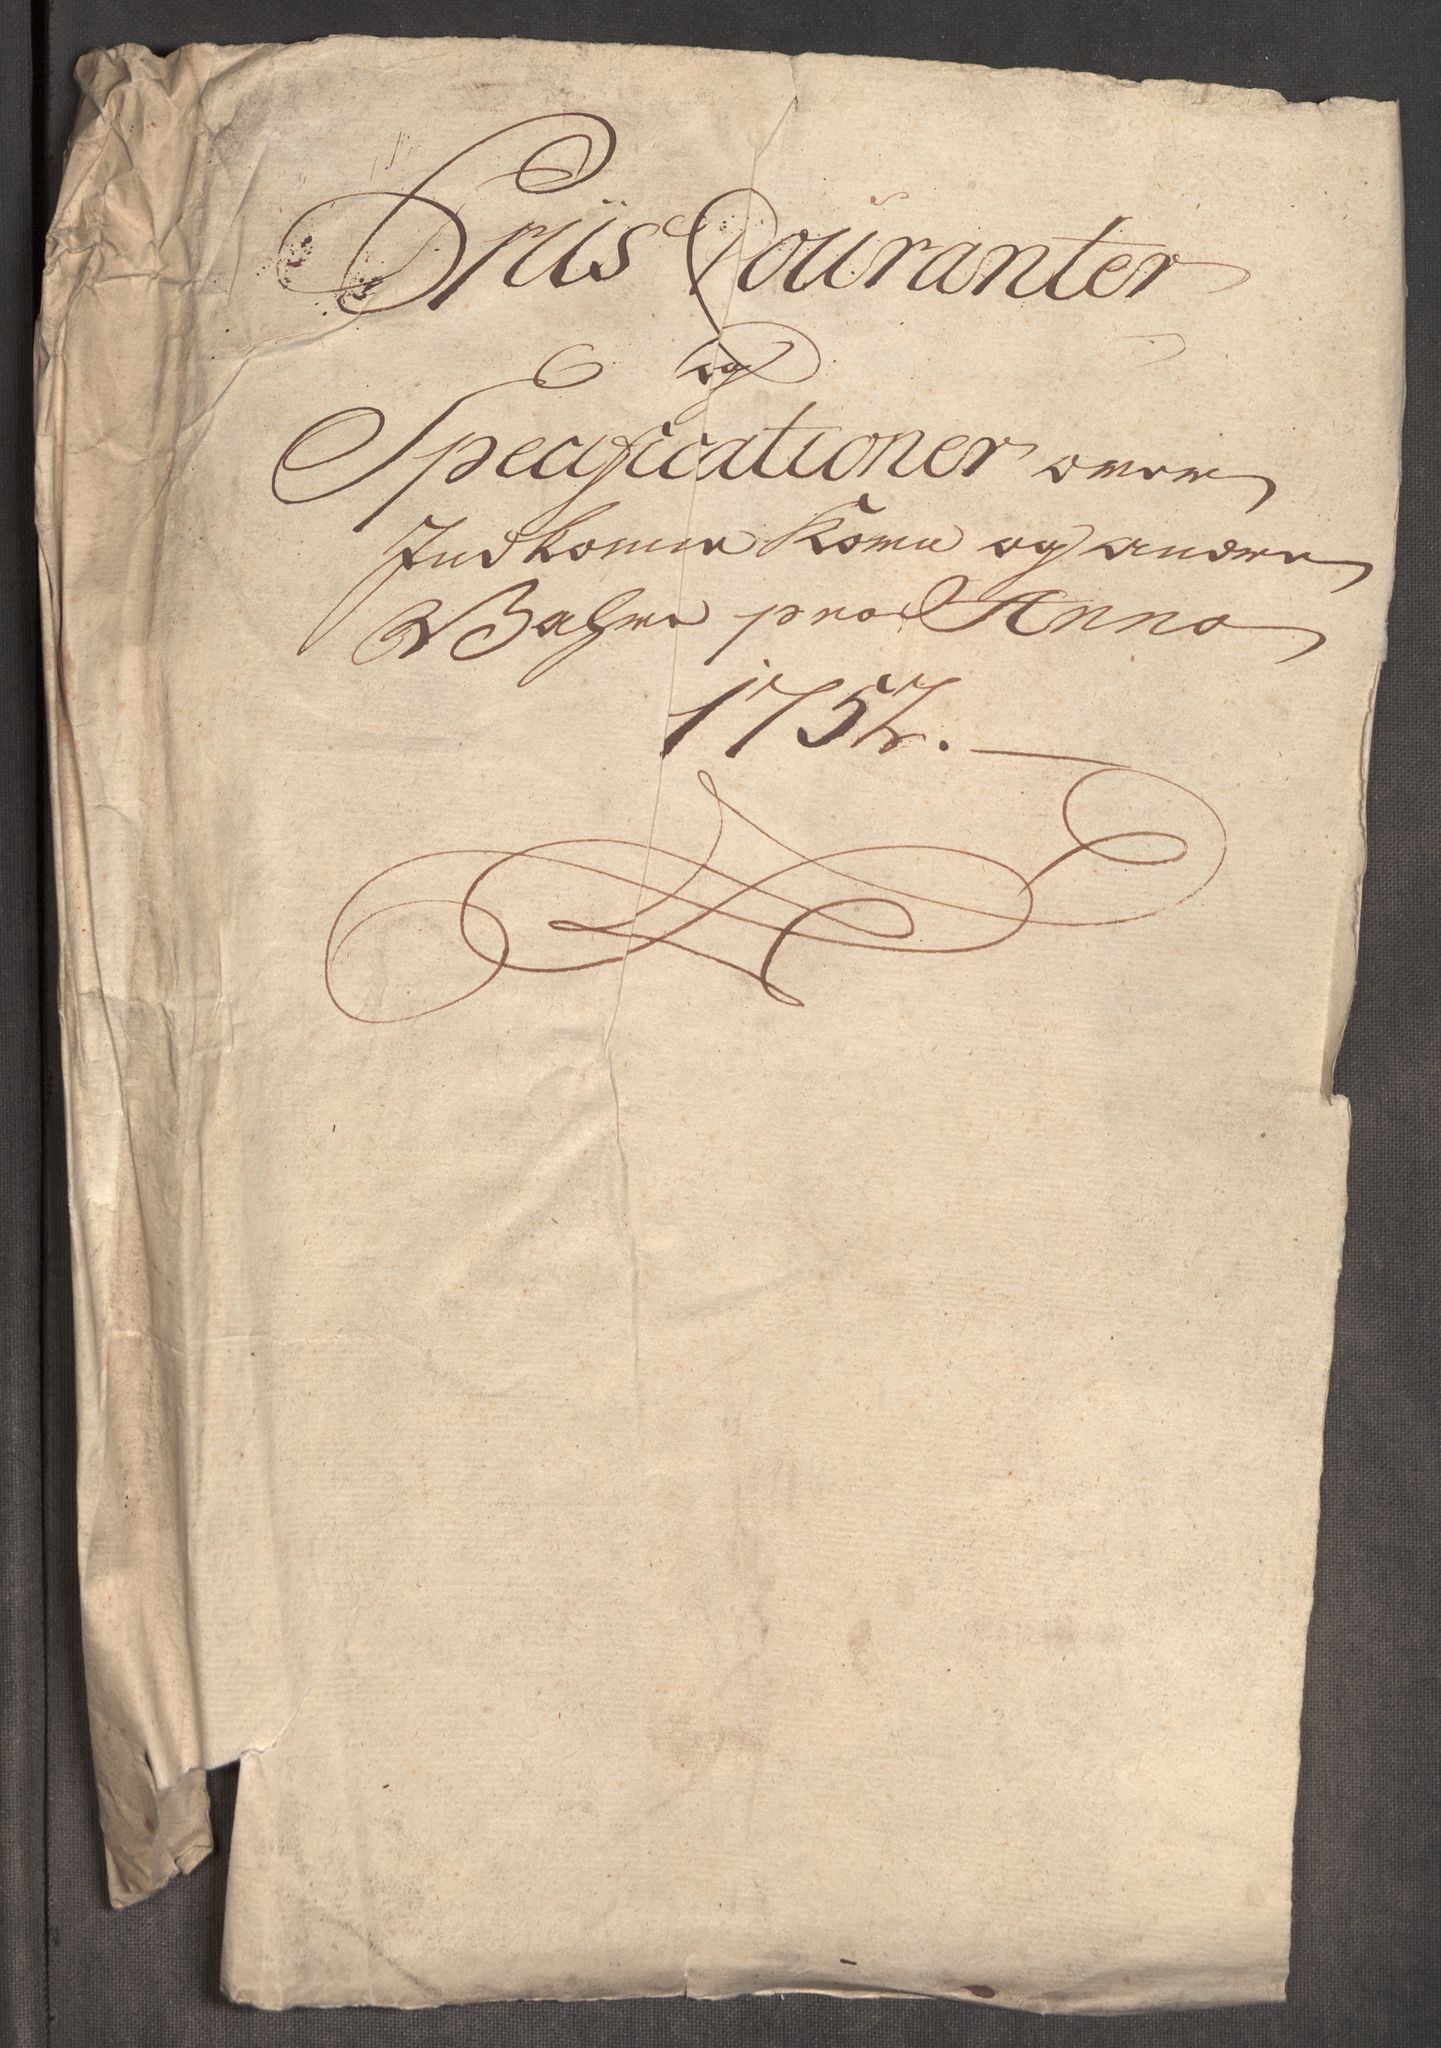 Priis Couranter
og
Specificationer over
Indkomne Korn og andre
Wahre pro Anno
1752.